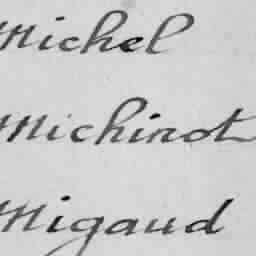 Michel
Michinot
Migaud